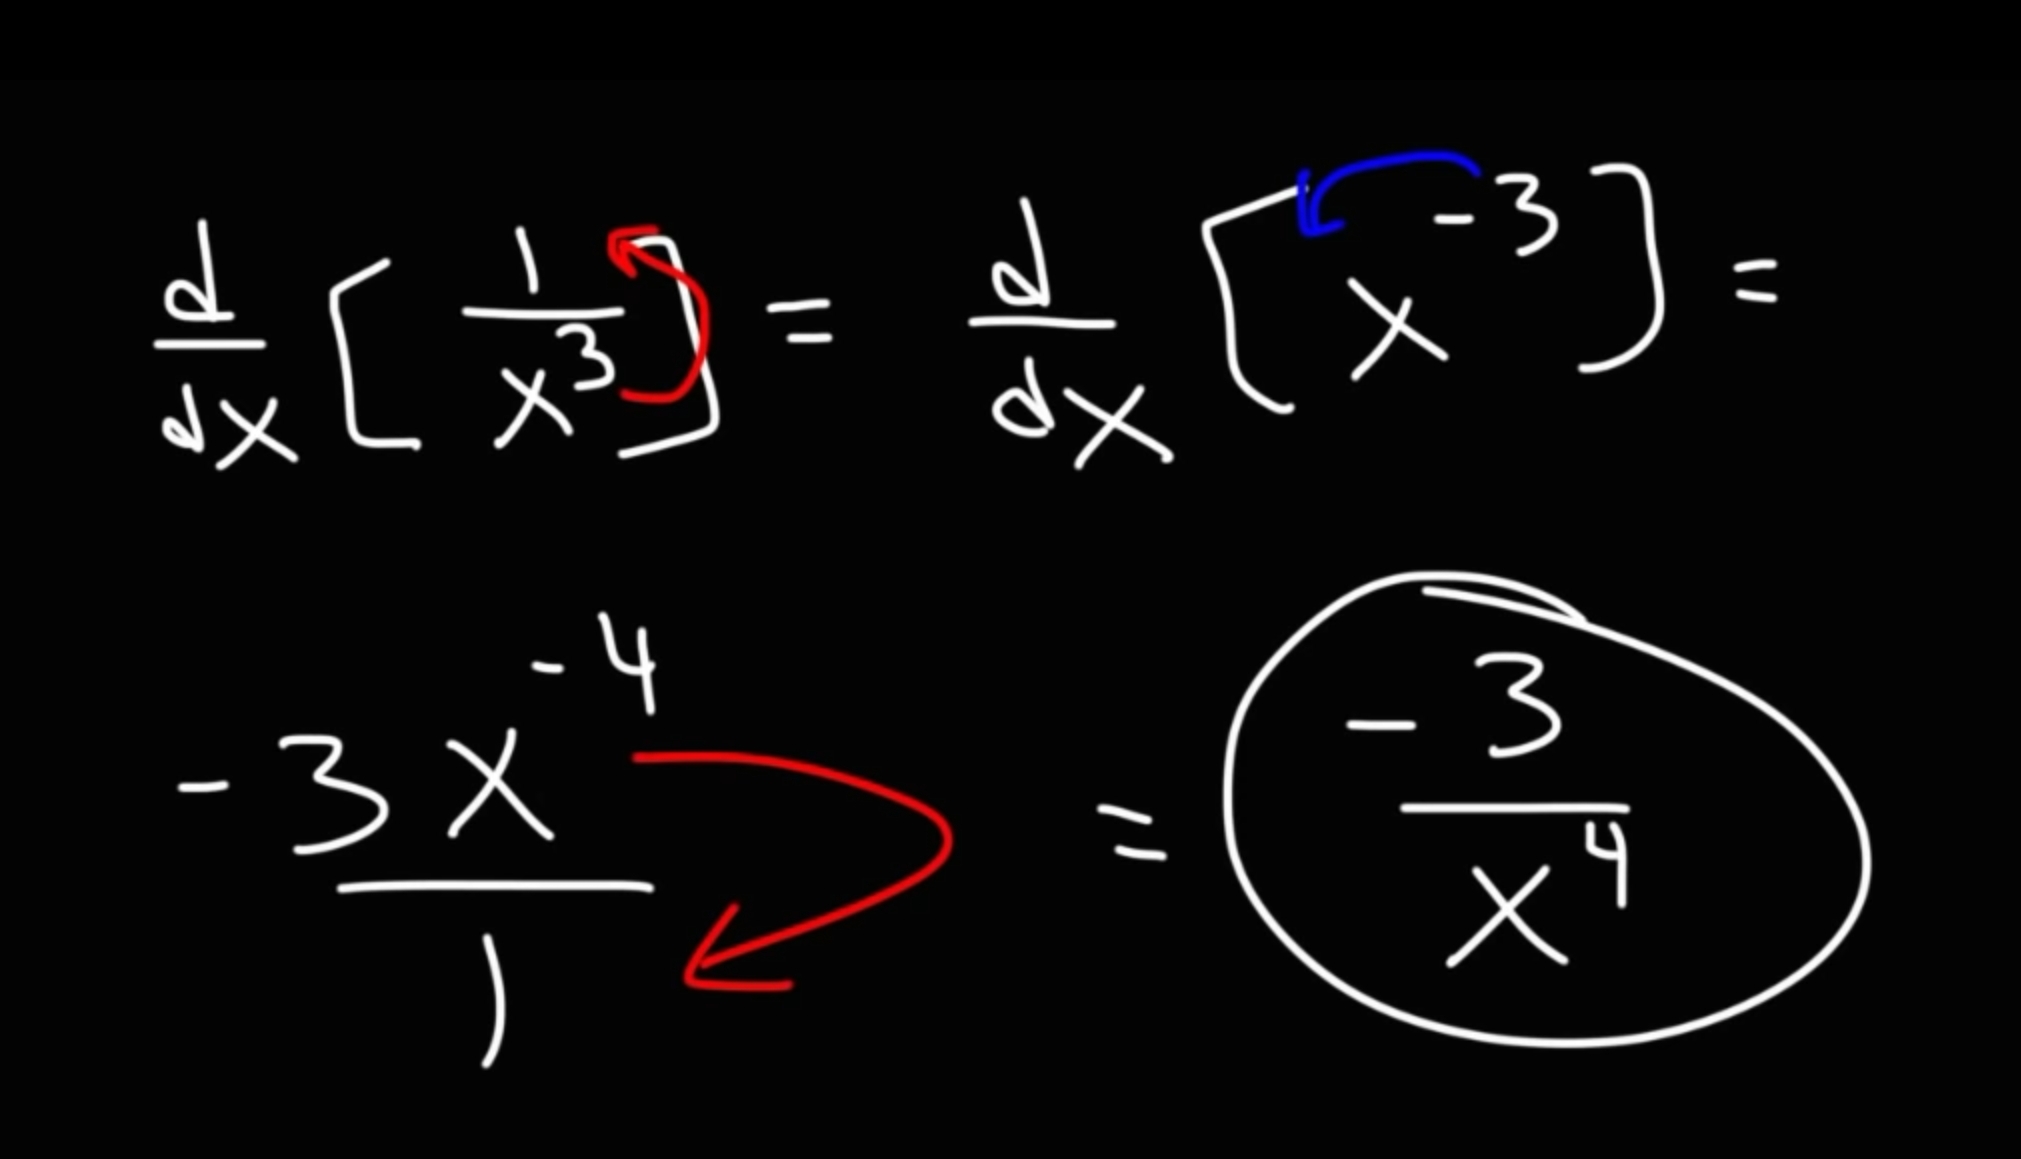 d/dx [1/x³] = d/dx [x⁻³] =
-3x⁻⁴/1 = -3/x⁴